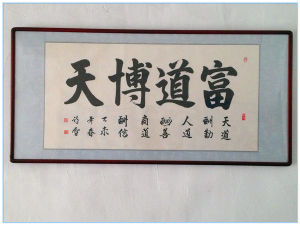 富道博天
天道
酬勤
人道
酬善
商道
酬信
年春